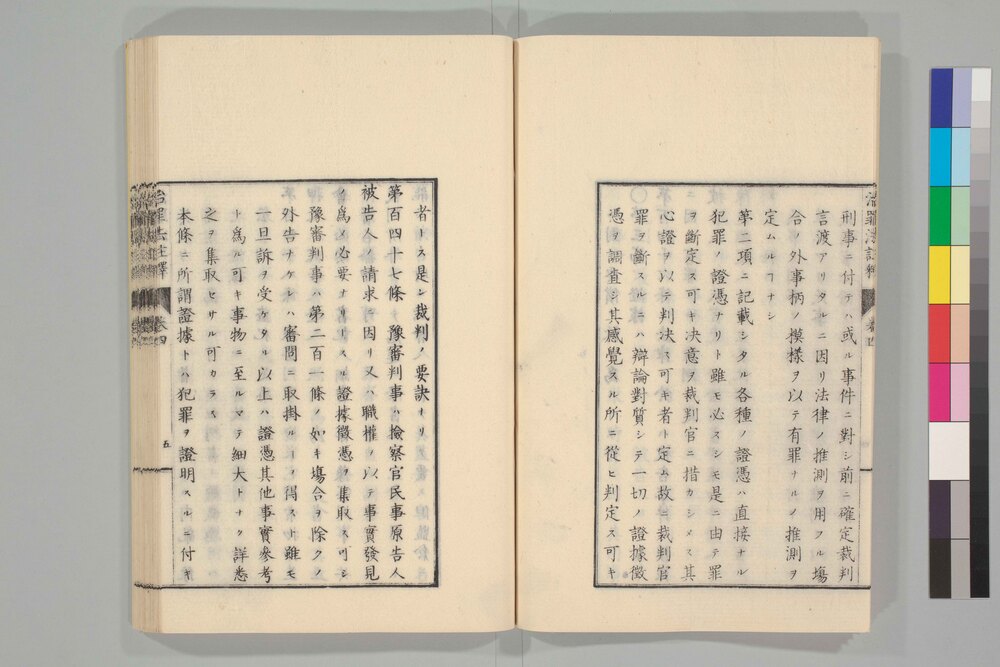 刑事ニ付テハ或ル事件ニ對シ前ニ確定裁判
言渡アリタルニ因リ法律ノ推測ヲ用フル塲
合ノ外事柄ノ模樣ヲ以テ有罪ナルノ推測ヲ
定ムルヿナシ
第二項ニ記載シタル各種ノ證憑ハ直接ナル
犯罪ノ證憑ナリト雖モ必スシモ是ニ由テ罪
ヲ斷定ス可キ决意ヲ裁判官ニ措カシメス其
心證ヲ以テ判决ス可キ者ト定ム故ニ裁判官
罪ヲ斷スルニハ辯論對質シテ一切ノ證據徵
憑ヲ調査シ其感覺スル所ニ從ヒ判定ス可キ
者トス是レ裁判ノ要訣ナリ
第百四十七條 豫審判事ハ撿察官民事原告人
被告人ノ請求ニ因リ又ハ職權ヲ以テ事實發見
ノ爲メ必要ナリトスル證據徵憑ヲ集取ス可シ
豫審判事ハ第二百一條ノ如キ塲合ヲ除クノ
外告ナケレハ審問ニ取掛ルヿヲ得スト雖モ
一旦訴ヲ受ケタル以上ハ證憑其他事實參考
ト爲ル可キ事物ニ至ルマテ細大トナク詳悉
之ヲ集取セサル可カラス
本條ニ所謂證據トハ犯罪ヲ證明スルニ付キ
治罪法註釋
卷四
五